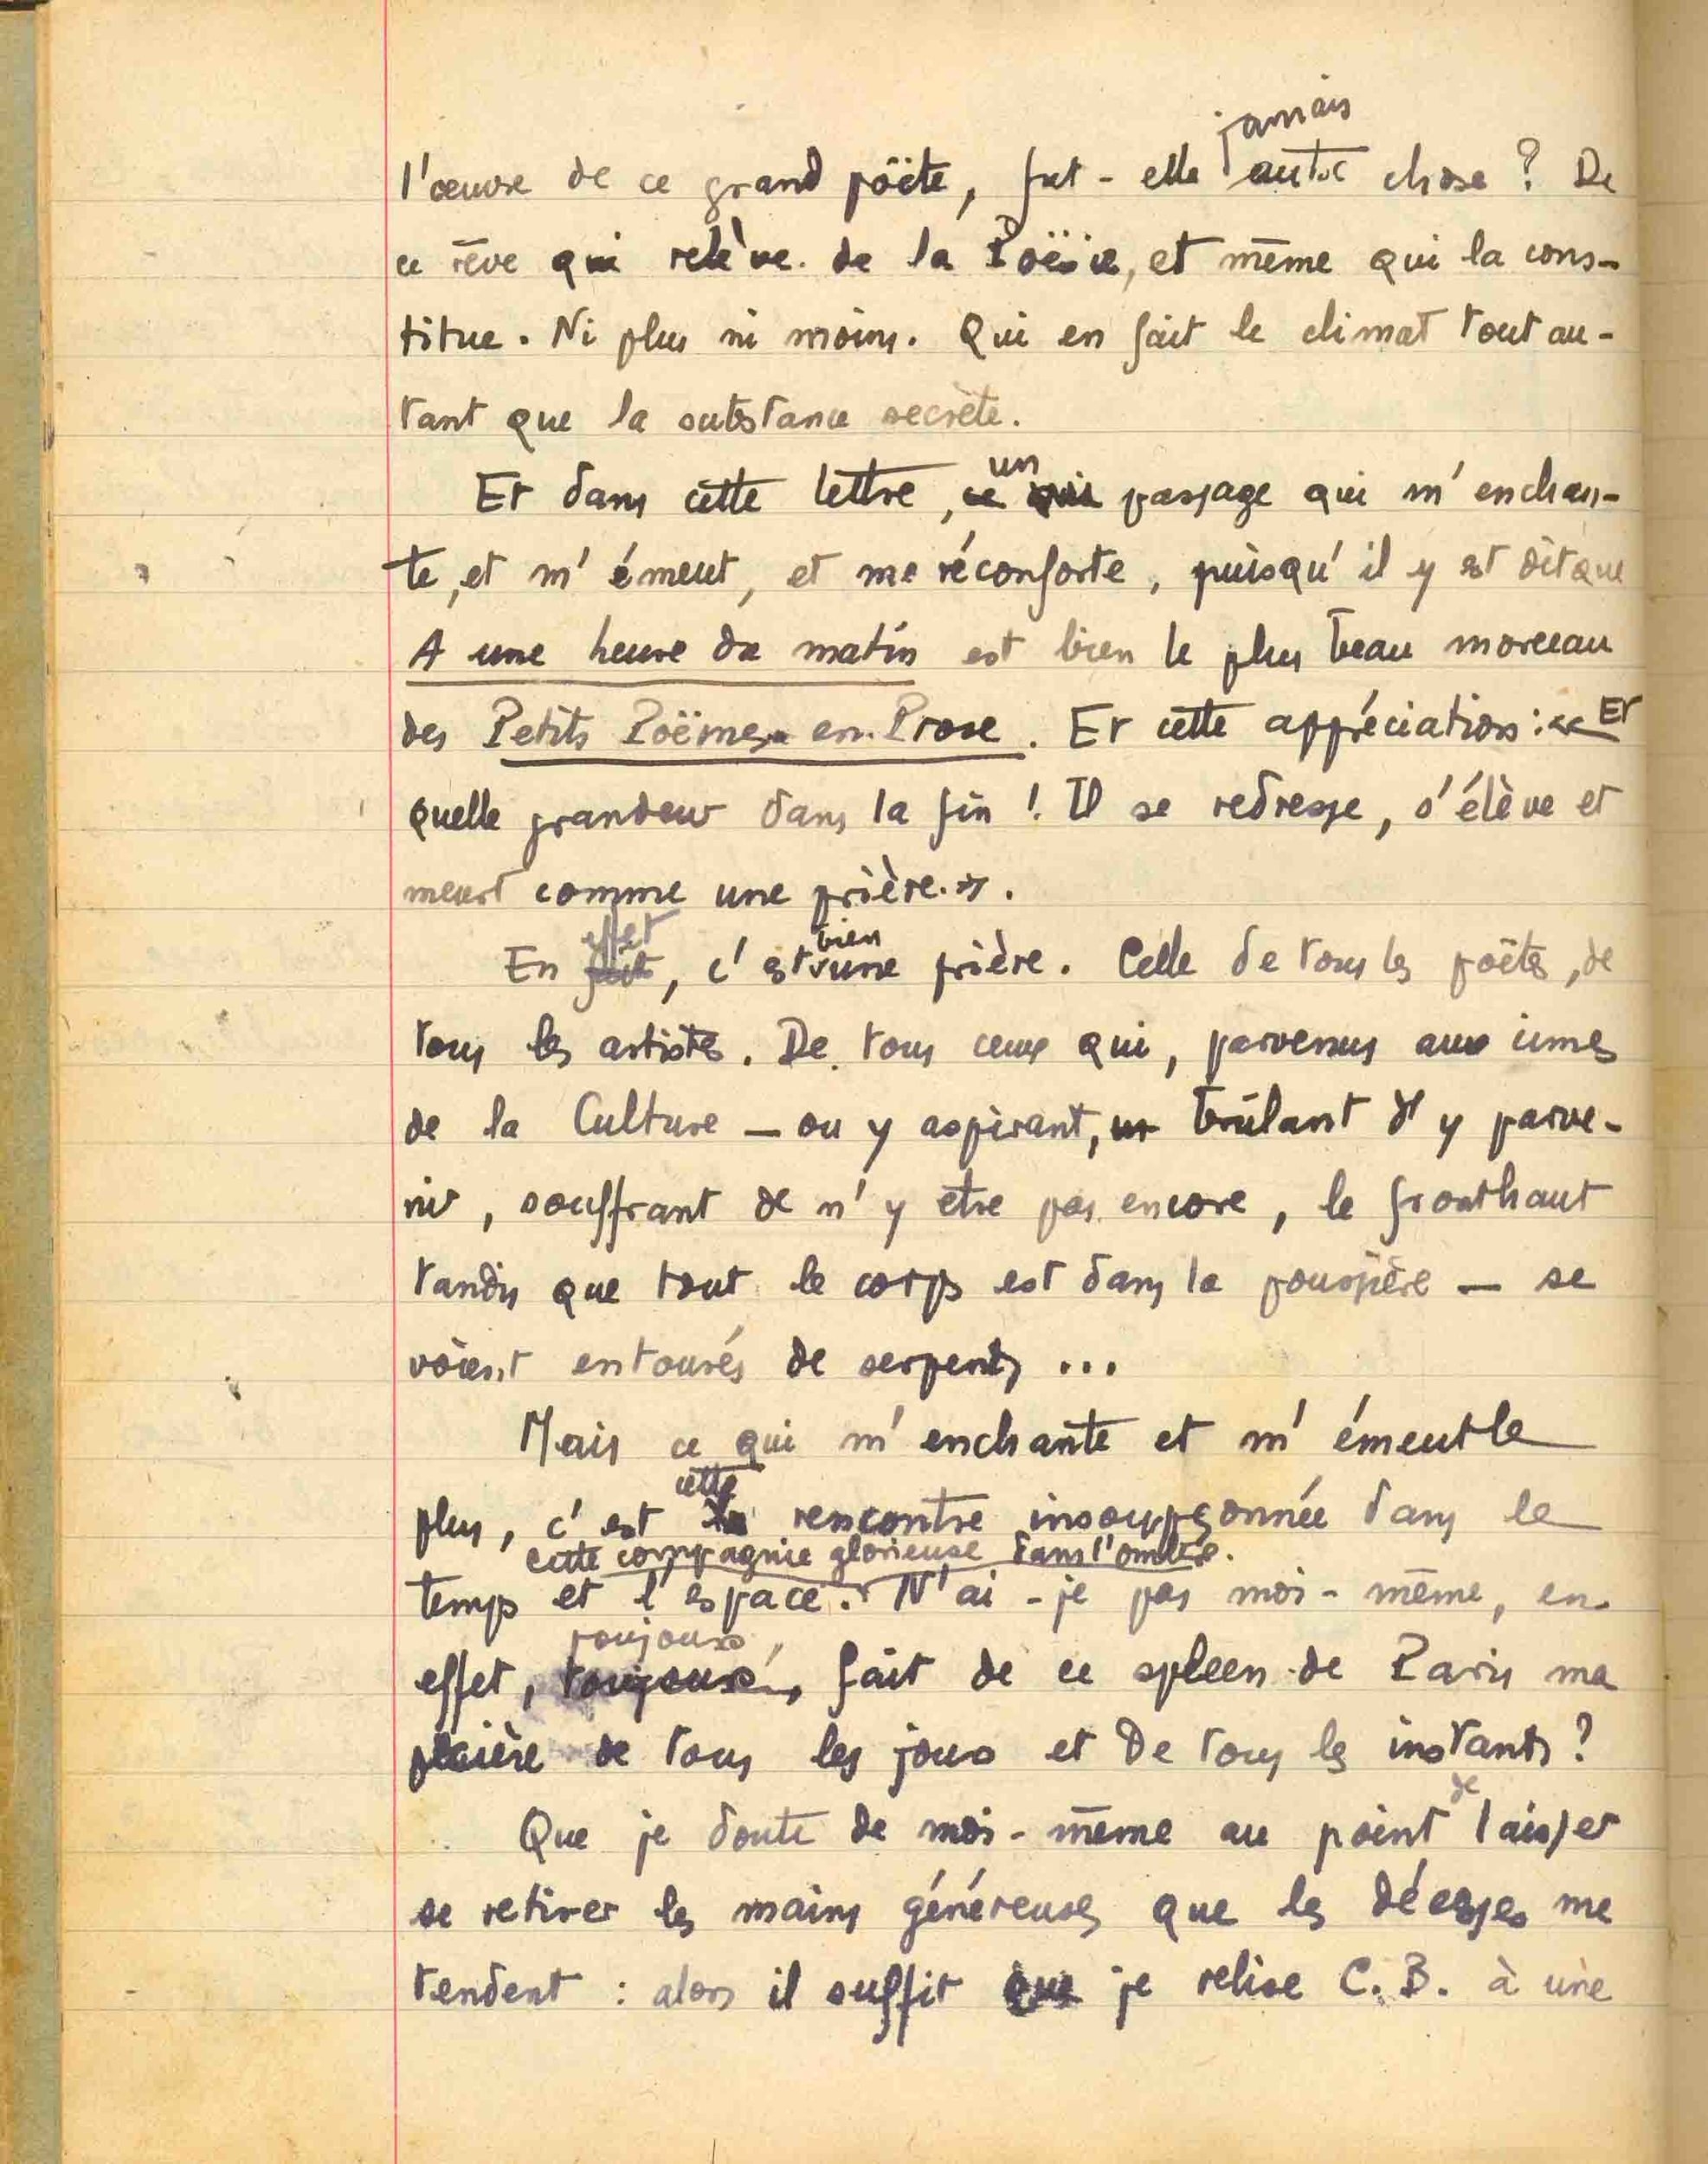 jamais
l'œuvre de ce grand poëte, fut-elle autre chose ? De
ce rêve qui relève de la Poësie, et même qui la cons-
titue. Ni plus ni moins. Qui en fait le climat tout au-
tant que la substance secrète.
un
Et dans cette lettre, ce qui passage qui m'enchan-
te, et m'émeut, et me réconforte, puisqu'il y est dit que
A une heure du matin est bien le plus beau morceau
des Petits Poëmes en Prose. Et cette appréciation : « Et
quelle grandeur dans la fin ! Il se redresse, s'élève et
meurt comme une prière. ».
effet bien
En fait, c'est une prière. Celle de tous les poëtes, de
tous les artistes. De tous ceux qui, parvenus aux cimes
de la Culture — ou y aspirant, brûlant d'y parve-
nir, souffrant de n'y etre pas encore, le front haut
tandis que tout le corps est dans la poussière — se
voient entourés de serpents ...
Mais ce qui m'enchante et m'émeut le
cette
plus, c'est la rencontre insoupçonnée dans le
cette compagnie glorieuse dans l'ombre.
temps et l'espace. N'ai-je pas moi-même, en
toujours,
effet, toujours, fait de ce spleen de Paris ma
prière de tous les jours et de tous les instants ?
de
Que je doute de moi-même au point laisser
se retirer les mains généreuses que les déesses me
tendent : alors il suffit que je relise C. B. à une